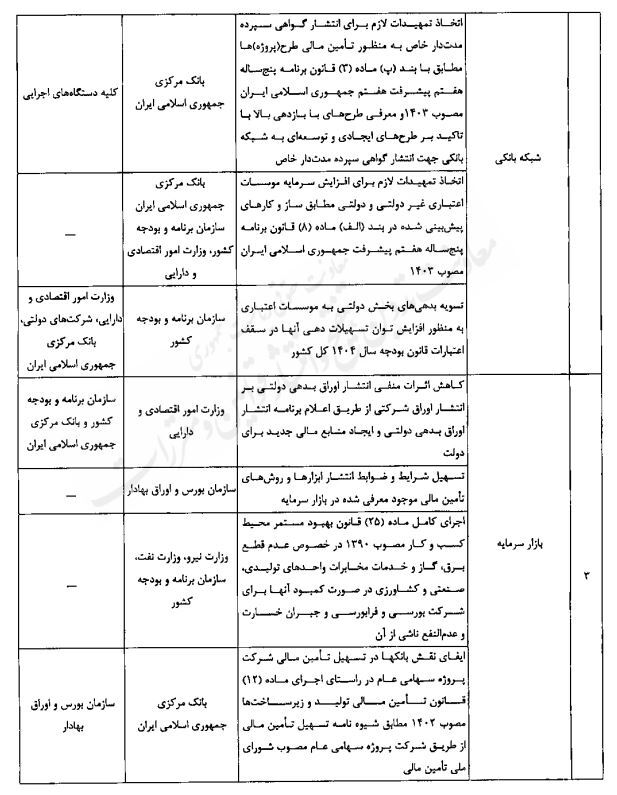 شبکه بانکی
اتخاذ تمهیدات لازم برای انتشار گواهی سپرده
مدت‌دار خاص به منظور تأمین مالی طرح(پروژه)ها
مطابق با بند (پ) ماده (۳) قانون برنامه پنج‌ساله
هفتم پیشرفت هفتم جمهوری اسلامی ایران
مصوب ۱۴۰۳و معرفی طرح‌های با بازدهی بالا با
تاکید بر طرح‌های ایجادی و توسعه‌ای به شبکه
بانکی جهت انتشار گواهی سپرده مدت‌دار خاص
بانک مرکزی
جمهوری اسلامی ایران
کلیه دستگاه‌های اجرایی
اتخاذ تمهیدات لازم برای افزایش سرمایه موسسات
اعتباری غیر دولتی و دولتی مطابق ساز و کارهای
پیش‌بینی شده در بند (الف) ماده (۸) قانون برنامه
پنج‌ساله هفتم پیشرفت جمهوری اسلامی ایران
مصوب ۱۴۰۳
بانک مرکزی
جمهوری اسلامی ایران
سازمان برنامه و بودجه
کشور، وزارت امور اقتصادی
و دارایی
—
تسویه بدهی‌های بخش دولتی به موسسات اعتباری
به منظور افزایش توان تسهیلات دهی آنها در سقف
اعتبارات قانون بودجه سال ۱۴۰۴ کل کشور
سازمان برنامه و بودجه
کشور
وزارت امور اقتصادی و
دارایی، شرکت‌های دولتی،
بانک مرکزی
جمهوری اسلامی ایران
۳
بازار سرمایه
کاهش اثرات منفی انتشار اوراق بدهی دولتی بر
انتشار اوراق شرکتی از طریق اعلام برنامه انتشار
اوراق بدهی دولتی و ایجاد منابع مالی جدید برای
دولت
وزارت امور اقتصادی و
دارایی
سازمان برنامه و بودجه
کشور و بانک مرکزی
جمهوری اسلامی ایران
تسهیل شرایط و ضوابط انتشار ابزارها و روش‌های
تأمین مالی موجود معرفی شده در بازار سرمایه
سازمان بورس و اوراق بهادار
—
اجرای کامل ماده (۲۵) قانون بهبود مستمر محیط
کسب و کار مصوب ۱۳۹۰ در خصوص عدم قطع
برق، گاز و خدمات مخابرات واحدهای تولیدی،
صنعتی و کشاورزی در صورت کمبود آنها برای
شرکت بورسی و فرابورسی و جبران خسارت
و عدم‌النفع ناشی از آن
وزارت نیرو، وزارت نفت،
سازمان برنامه و بودجه
کشور
—
ایفای نقش بانکها در تسهیل تأمین مالی شرکت
پروژه سهامی عام در راستای اجرای ماده (۱۲)
قانون تأمین مالی تولید و زیرساخت‌ها
مصوب ۱۴۰۲ مطابق شیوه نامه تسهیل تأمین مالی
از طریق شرکت پروژه سهامی عام مصوب شورای
ملی تأمین مالی
بانک مرکزی
جمهوری اسلامی ایران
سازمان بورس و اوراق
بهادار